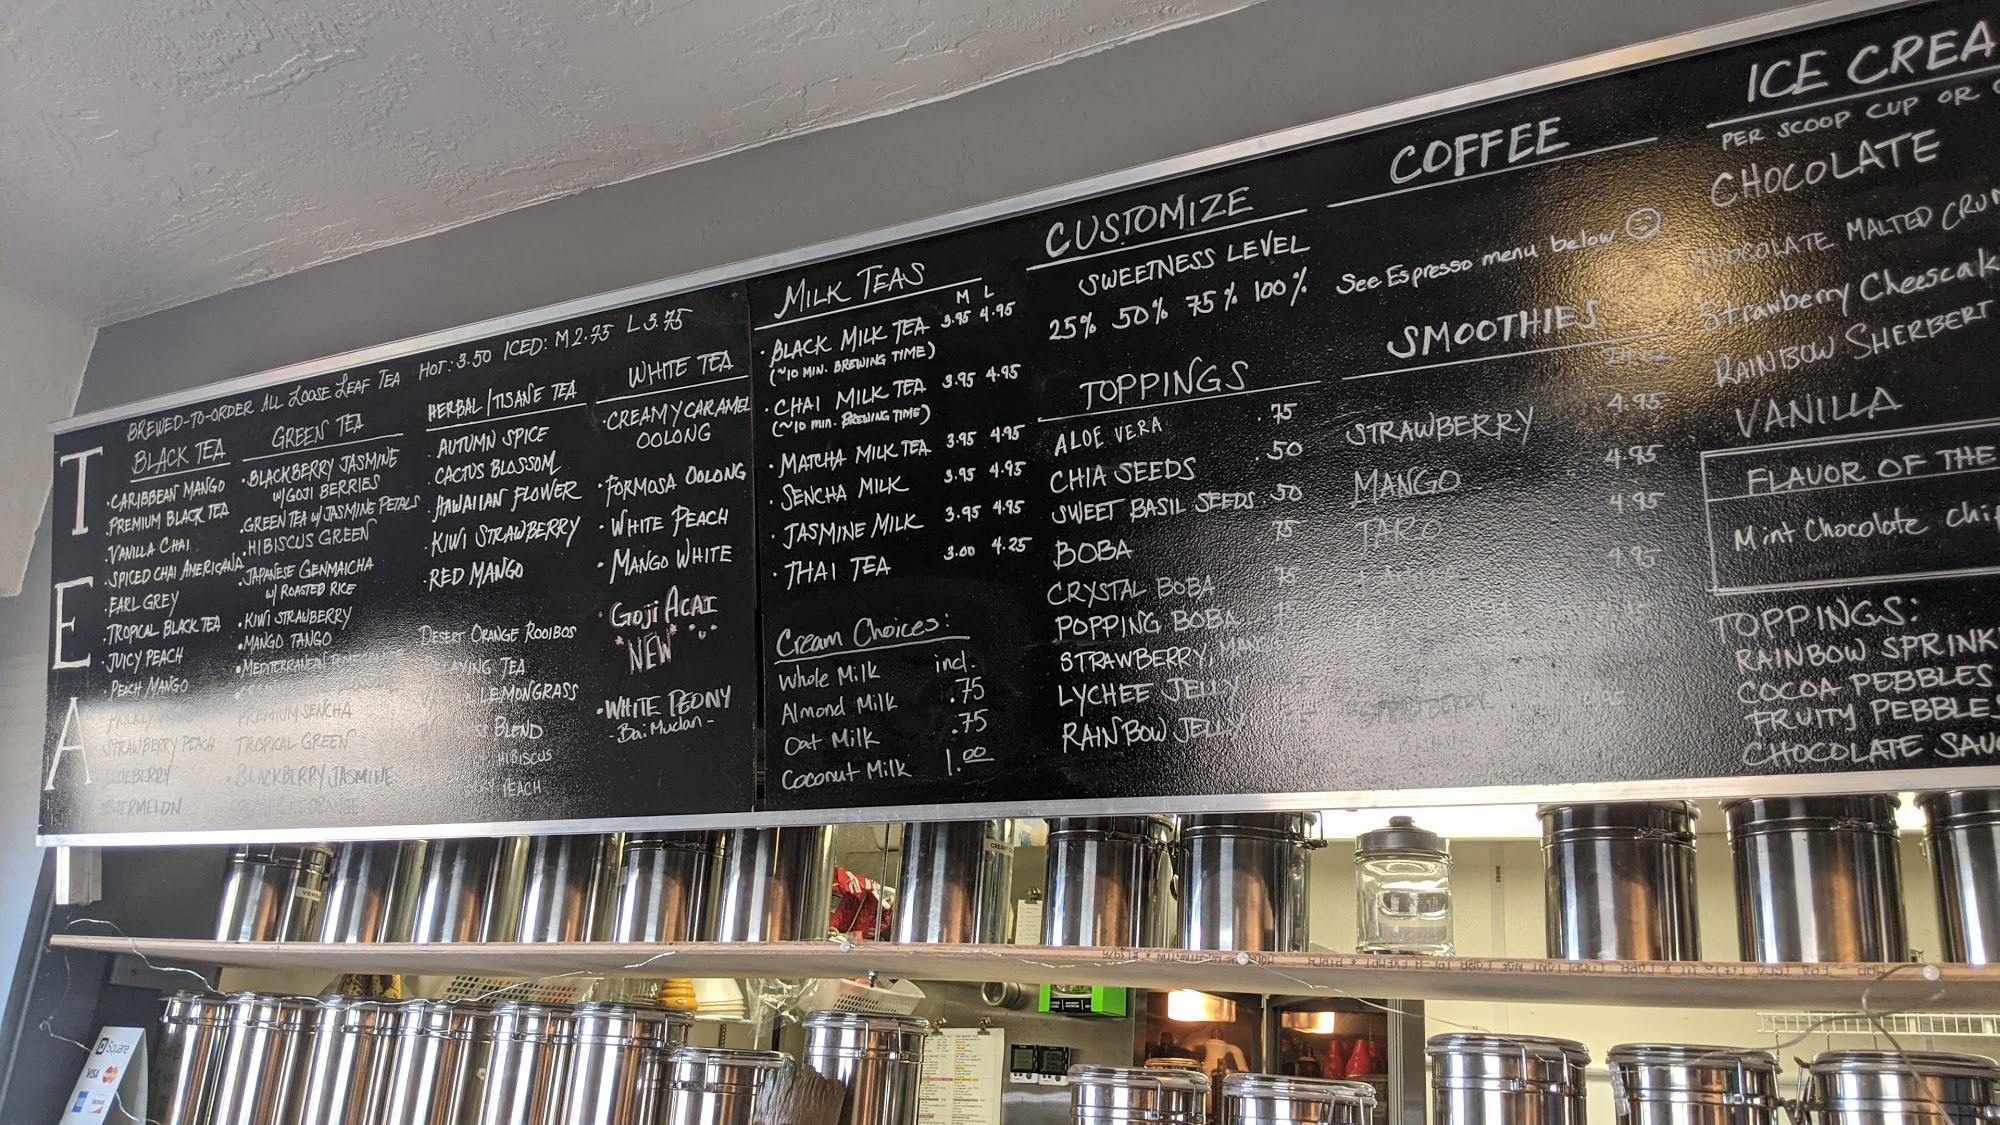 T
E
A
BREWED-TO-ORDER ALL LOOSE LEAF TEA HOT: 3.50 ICED: M 2.75 L 3.75
BLACK TEA
• CARIBBEAN MANGO
• PREMIUM BLACK TEA
• VANILLA CHAI
• SPICED CHAI AMERICANA
• EARL GREY
• TROPICAL BLACK TEA
• JUICY PEACH
• PEACH MANGO
STRAWBERRY PEACH
GREEN TEA
• BLACKBERRY JASMINE
W/GOJI BERRIES
• GREEN TEA W/ JASMINE PETALS
• HIBISCUS GREEN
• JAPANESE GENMAICHA
W/ ROASTED RICE
• KIWI STRAWBERRY
• MANGO TANGO
• MEDITERRANEAN
PREMIUM SENCHA
TROPICAL GREEN
• BLACKBERRY JASMINE
HERBAL/TISANE TEA
• AUTUMN SPICE
• CACTUS BLOSSOM
• HAWAIIAN FLOWER
• KIWI STRAWBERRY
• RED MANGO
DESERT ORANGE ROOIBOS
TEA
LEMONGRASS
BLEND
HIBISCUS
PEACH
WHITE TEA
• CREAMY CARAMEL
OOLONG
• FORMOSA OOLONG
• WHITE PEACH
• MANGO WHITE
• GOJI ACAI
*NEW*
• WHITE PEONY
- Bai Mudan -
MILK TEAS
M L
• BLACK MILK TEA 3.95 4.95
(~10 MIN. BREWING TIME)
• CHAI MILK TEA 3.95 4.95
(~10 MIN. BREWING TIME)
• MATCHA MILK TEA 3.95 4.95
• SENCHA MILK 3.95 4.95
• JASMINE MILK 3.95 4.95
• THAI TEA 3.00 4.25
Cream Choices:
Whole Milk incl.
Almond Milk .75
Oat Milk .75
Coconut Milk 1.00
CUSTOMIZE
SWEETNESS LEVEL
25% 50% 75% 100%
TOPPINGS
ALOE VERA .75
CHIA SEEDS .50
SWEET BASIL SEEDS .50
BOBA .75
CRYSTAL BOBA
POPPING BOBA
STRAWBERRY, MANGO
LYCHEE JELLY
RAINBOW JELLY
COFFEE
See Espresso menu below
SMOOTHIES
24 oz
STRAWBERRY 4.95
MANGO 4.95
TARO 4.95
4.95
ICE CREA
PER SCOOP CUP OR
CHOCOLATE
CHOCOLATE MALTED CRUN
Strawberry Cheesecak
RAINBOW SHERBERT
VANILLA
FLAVOR OF THE
Mint Chocolate Chip
TOPPINGS:
RAINBOW SPRINK
COCOA PEBBLES
FRUITY PEBBLES
CHOCOLATE SAUC
Square
VISA